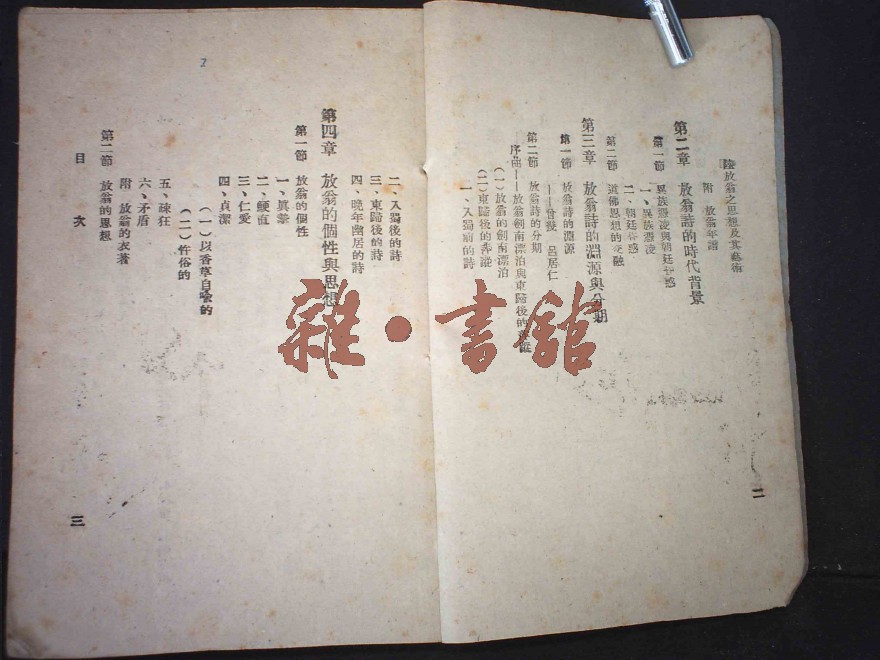 陸放翁之思想及其藝術
附 放翁年譜
第二章 放翁詩的時代背景
第一節 異族憑凌與朝廷昏惑
一、異族憑凌
二、朝廷昏惑
第二節 道佛思想的交融
第三章 放翁詩的淵源與分期
第一節 放翁詩的淵源
——曾幾 呂居仁
第二節 放翁詩的分期
序曲——放翁劍南漂泊與東歸後的
(一)放翁的劍南漂泊
(二)東歸後的
一、入蜀前的詩
二
二、入蜀後的詩
三、東歸後的詩
四、晚年幽居的詩
第四章 放翁的個性與思想
第一節 放翁的個性
一、真摯
二、鯁直
三、仁愛
四、貞潔
(一)以香草自喻的
(二)忤俗的
五、疎狂
六、矛盾
附 放翁的衣著
第二節 放翁的思想
目次
三
2
雜·書舘